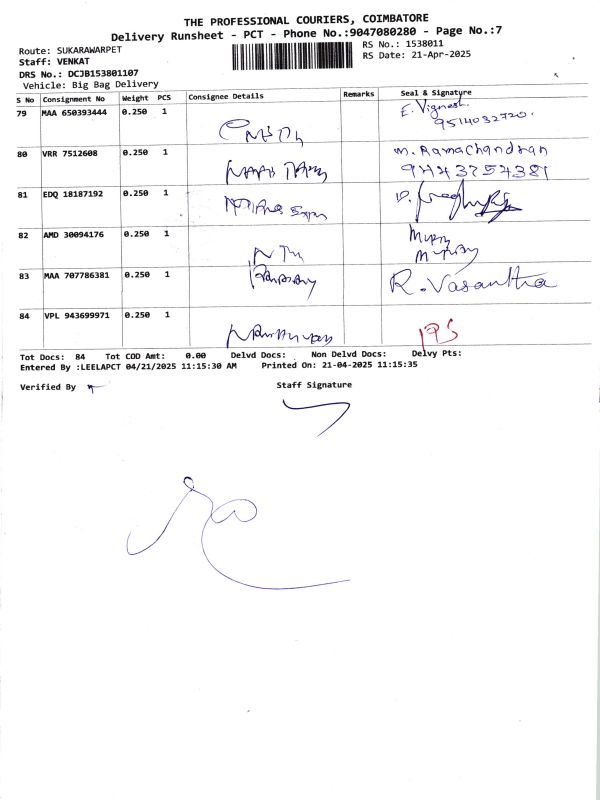 THE PROFESSIONAL COURIERS, COIMBATORE
Delivery Runsheet - PCT - Phone No.:9047080280 - Page No.:7
Route: SUKARAWARPET
RS No.: 1538011
Staff: VENKAT
RS Date: 21-Apr-2025
DRS No.: DCJB153801107
Vehicle: Big Bag Delivery
S No Consignment No Weight PCS Consignee Details Remarks Seal & Signature
79 MAA 650393444 0.250 1 E. Vignesh
9514032720.
80 VRR 7512608 0.250 1 M. Ramachandran
9443754381
81 EDQ 18187192 0.250 1
82 AMD 30094176 0.250 1
83 MAA 707786381 0.250 1 R. Vasantha
84 VPL 943699971 0.250 1
Tot Docs: 84 Tot COD Amt: 0.00 Delvd Docs: Non Delvd Docs: Delvy Pts:
Entered By :LEELAPCT 04/21/2025 11:15:30 AM Printed On: 21-04-2025 11:15:35
Verified By
Staff Signature